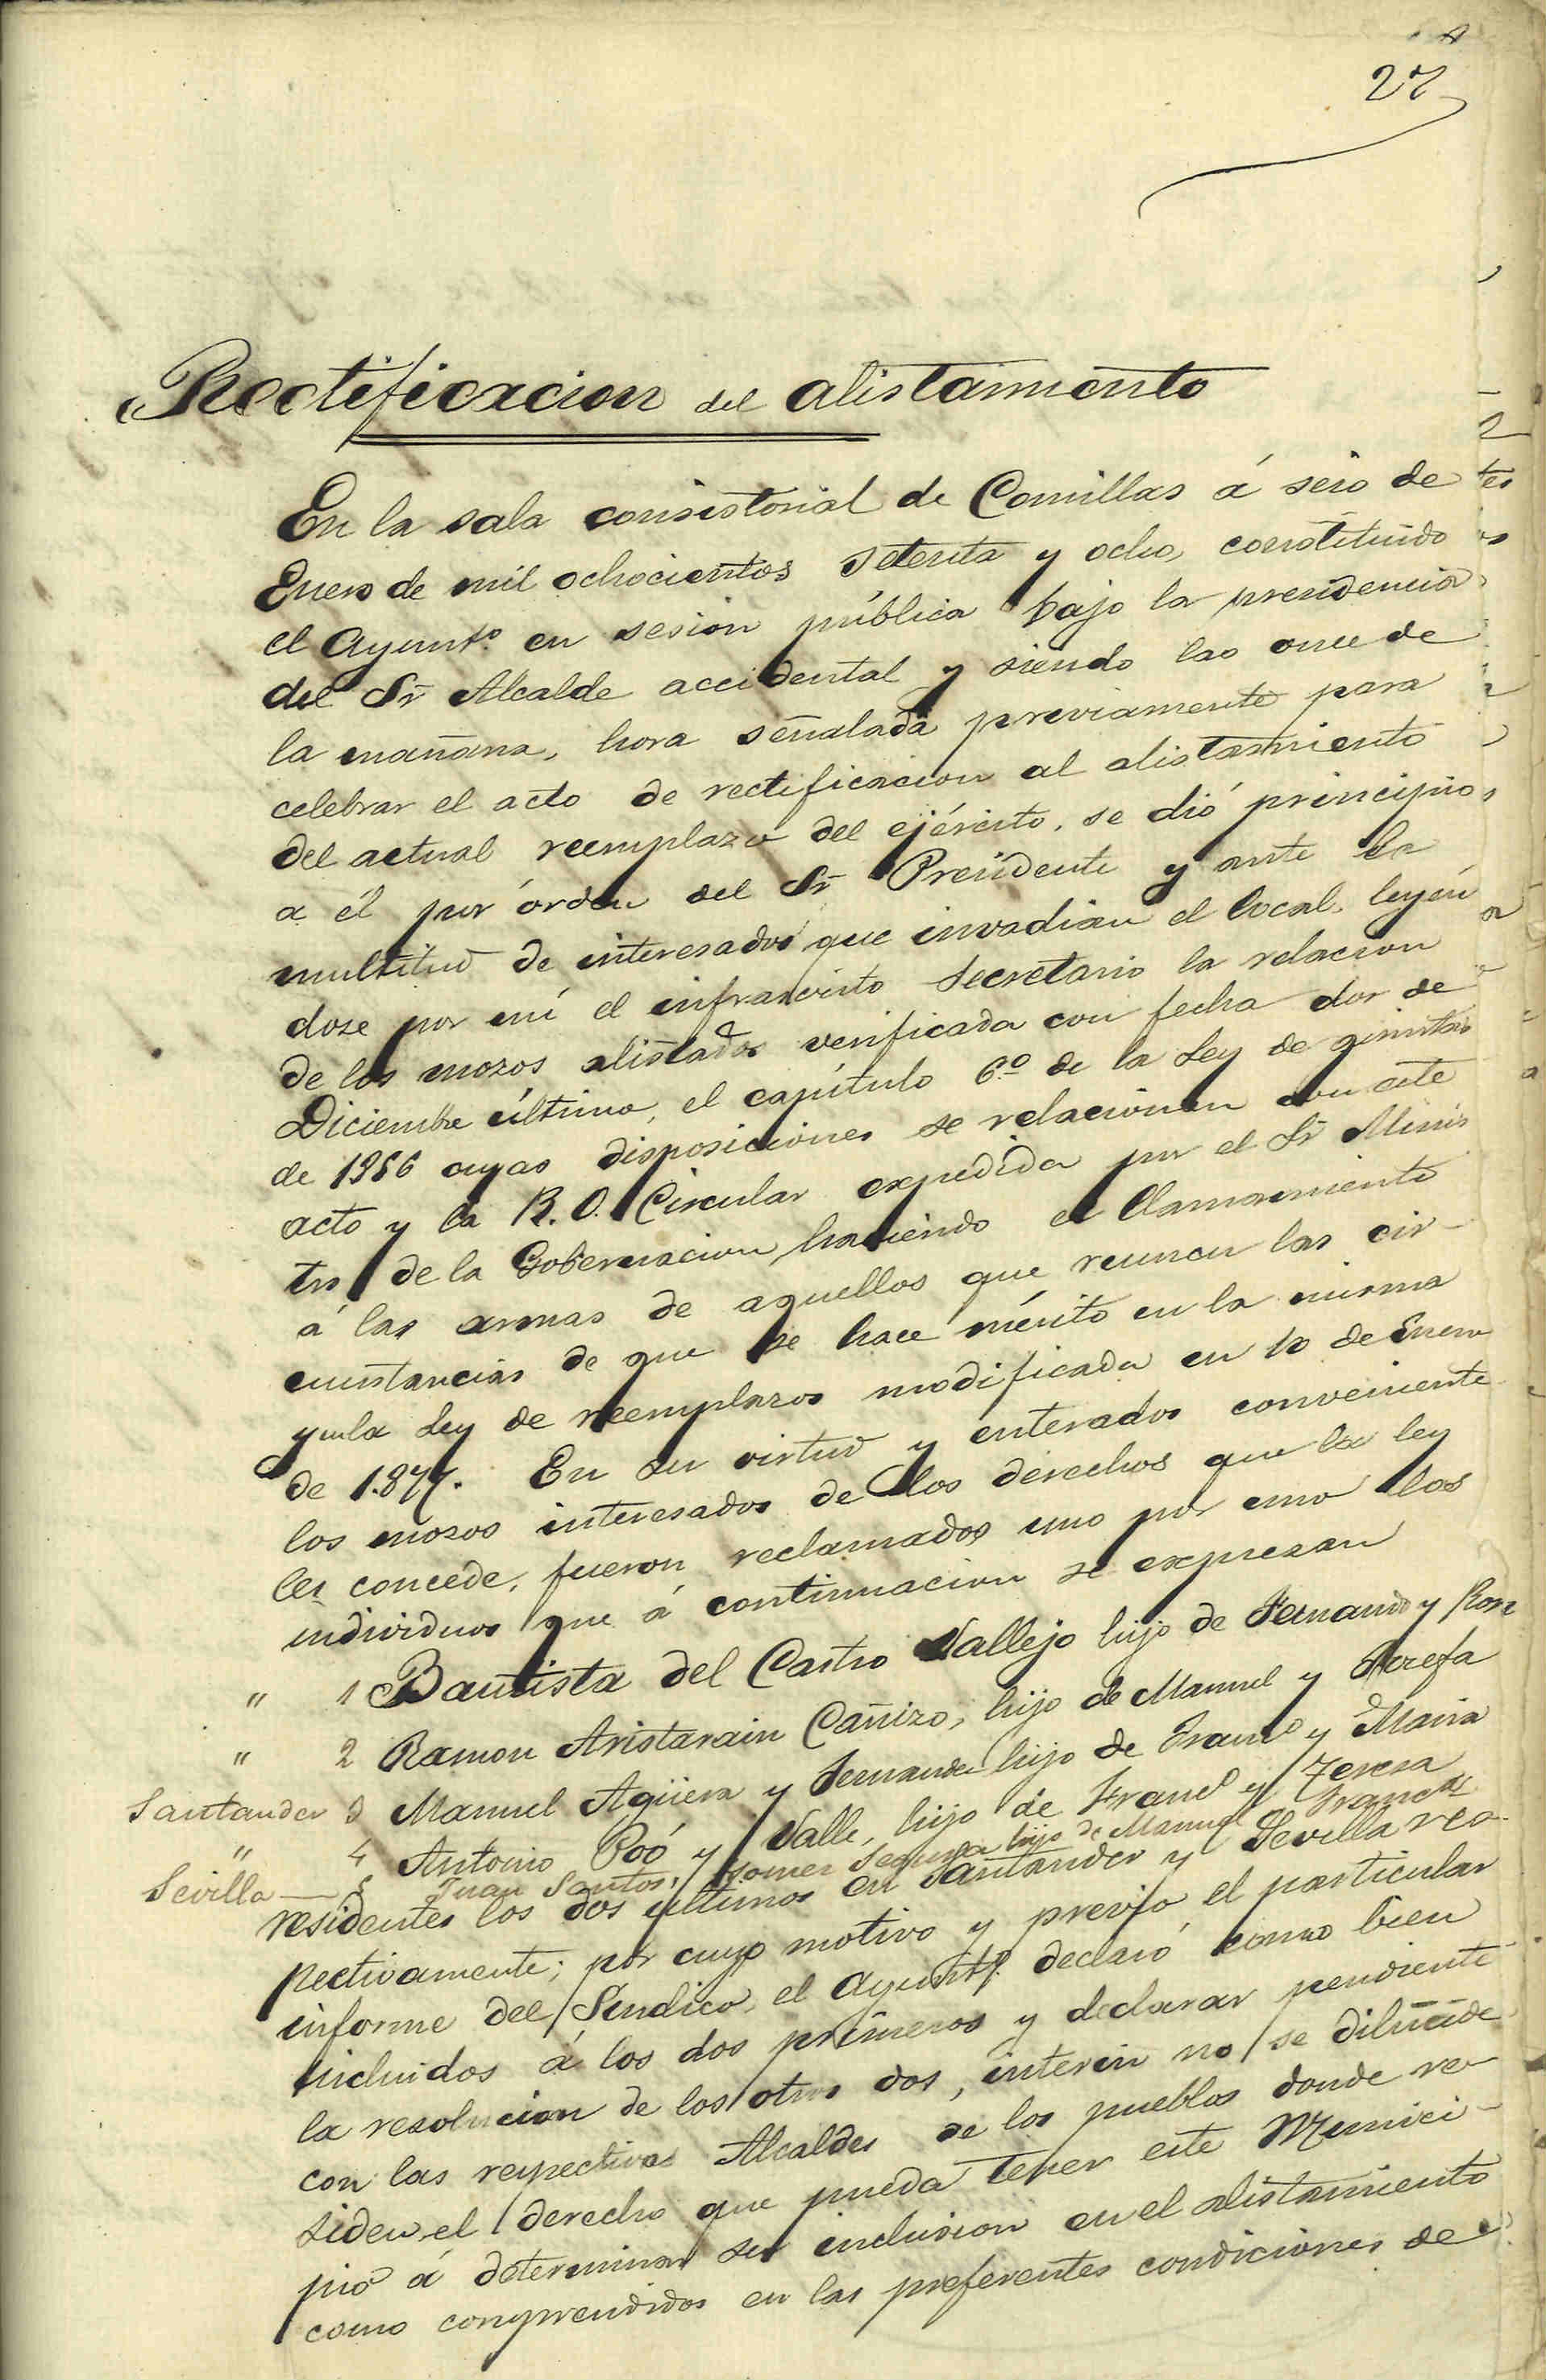 27
Rectificacion del alistamiento
En la sala consistorial de Comillas á seis de
Enero de mil ochocientos setenta y ocho, constituido
el Ayunt.º en sesion pública bajo la presidencia
del Sr Alcalde accidental y siendo las once de
la mañana, hora señalada previamente para
celebrar el acto de rectificacion al alistamiento
del actual reemplazo del ejército, se dió principio
a él por órden del Sr Presidente y ante la
multitud de interesados que invadian el local, leyén
dose por mí el infrascrito Secretario la relacion
de los mozos alistados verificada con fecha dos de
Diciembre último, el capítulo 6º de la Ley de quintas
de 1856 cuyas disposiciones se relacionan con este
acto y la R. O. Circular expedida por el Sr Minis
tro de la Gobernacion haciendo el llamamiento
á las armas de aquellos que reunen las cir-
cunstancias de que se hace mérito en la misma
y en la Ley de reemplazos modificada en 10 de Enero
de 1.877. En su virtud y enterados conveniente
los mozos interesados de los derechos que la ley
les concede, fueron reclamados uno por uno los
individuos que á continuacion se expresan
" 1 Bautista del Castro Vallejo hijo de Fernando y Rosa
" 2 Ramon Aristarain Cañizo, hijo de Manuel y Josefa
Santander 3 Manuel Agüera y Fernandez hijo de Franco y Maria
" 4 Antonio Poó y Valle, hijo de Franco y Teresa
Sevilla — 5 Juan Santos, Segura hijo de Manuel y Franca
residentes los dos ultimos en Santander y Sevilla res-
pectivamente; por cuyo motivo y previo el particular
informe del Síndico, el Ayuntº declaró como bien
incluidos á los dos primeros y declarar pendiente
la resolucion de los otros dos, interin no se dilucide
con las respectivas Alcaldes de los pueblos donde re-
siden el derecho que pueda tener este Munici-
pio á determinar su inclusion en el alistamiento
como comprendidos en las preferentes condiciones de